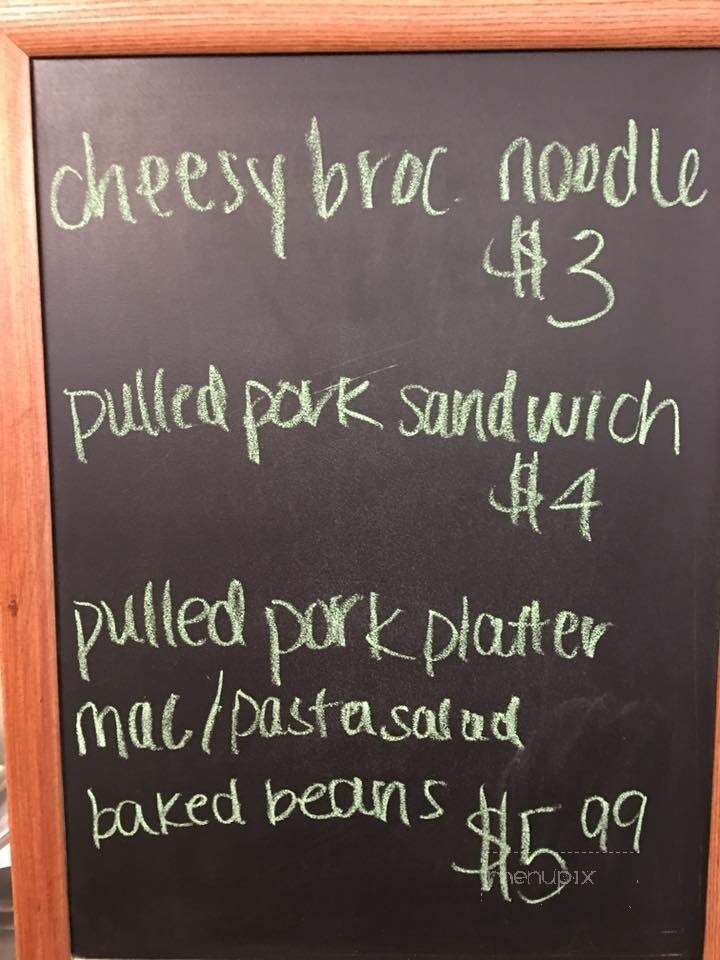 cheesy broc noodle
$3
pulled pork sandwich
$4
pulled pork platter
mac/pasta salad
baked beans $5 99
menupix